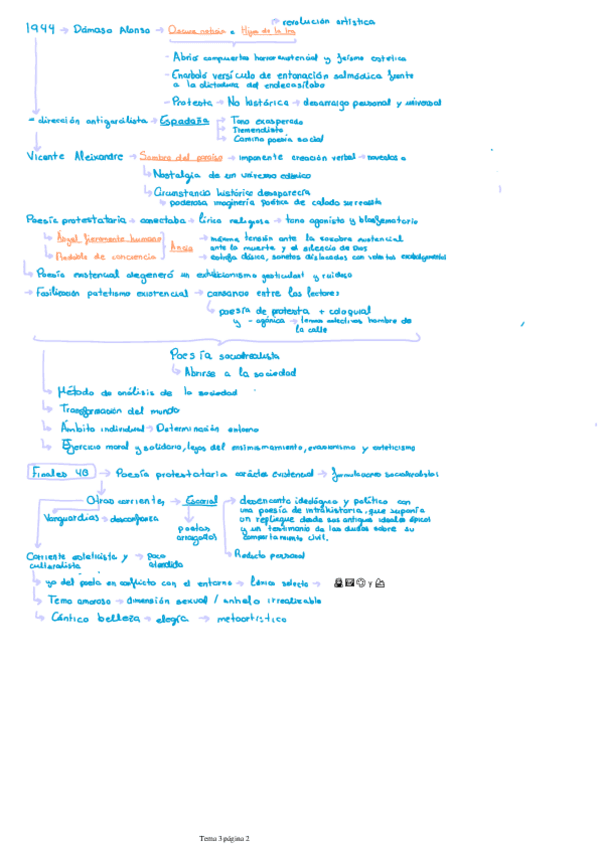 revolución artística
1944 → Dámaso Alonso → Oscura noticia e Hijos de la Ira
- Abrió compuertas horror existencial y feísmo estético
- Enarboló versículo de entonación salmódica frente
a la dictadura del endecasílabo
- Protesta → No histórica → desarraigo personal y universal
= dirección antigarcilista → Espadaña → Tono exasperado
Tremendista
Camino poesía social
Vicente Aleixandre → Sombra del paraíso → imponente creación verbal →
Nostalgia de un universo edénico
Circunstancia histórica desaparecía
→ poderosa imaginería poética de calado surrealista
Poesía protestataria → conectaba → lírica religiosa → tono agonista y blasfematorio
→ Ángel fieramente humano
→ Redoble de conciencia
Ancia
→ máxima tensión ante la zozobra existencial
ante la muerte y el silencio de Dios
→ estrofa clásica, sonetos dislocados con violentos encabalgamientos
→ Poesía existencial degeneró un exhibicionismo gesticulant y ruidoso
→ Fosilización patetismo existencial → cansancio entre los lectores
→ poesía de protesta + coloquial
y - agónica → temas colectivos hombre de
la calle
Poesía socialrealista
→ Abrirse a la sociedad
→ Método de análisis de la sociedad
→ Transformación del mundo
→ Ámbito individual → Determinación entorno
→ Ejercicio moral y solidario, lejos del ensimismamiento, evasionismo y esteticismo
Finales 40 → Poesía protestataria carácter existencial → formulaciones socialrealistas
Otras corrientes → Escorial → desencanto ideológico y político con
una poesía de intrahistoria, que suponía
un repliegue desde sus antiguos ideales épicos
y un testimonio de las dudas sobre su
comportamiento civil.
Vanguardias → desconfianza
poetas
arraigados
→ Reducto personal
Corriente esteticista y → poco
culturalista atendida
→ yo del poeta en conflicto con el entorno → léxico selecto → y
→ Tema amoroso → dimensión sexual / anhelo irrealizable
→ Cántico belleza → elegía → metaartístico
Tema 3 página 2